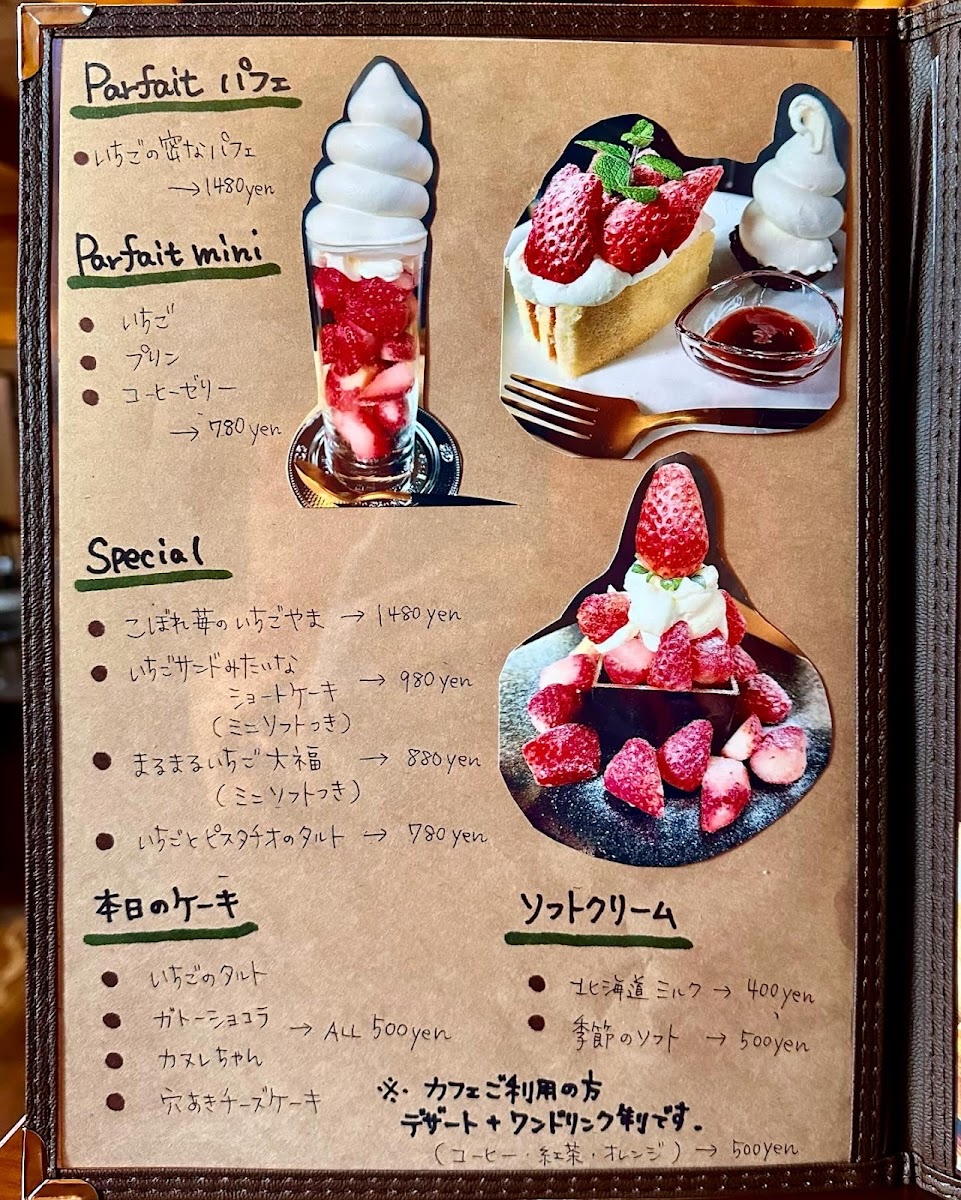 Parfait パフェ
いちごの蜜なパフェ
→1480yen
Parfait mini
いちご
プリン
コーヒーゼリー
→780yen
Special
こぼれ苺のいちごやま → 1480yen
いちごサンドみたいな
ショートケーキ → 980yen
(ミニソフトつき)
まるまるいちご大福 → 880yen
(ミニソフトつき)
いちごとピスタチオのタルト → 780yen
本日のケーキ
いちごのタルト
ガトーショコラ → ALL 500yen
カヌレちゃん
穴あきチーズケーキ
ソフトクリーム
北海道ミルク → 400yen
季節のソフト → 500yen
※・カフェご利用の方
デザート+ワンドリンク制です。
(コーヒー・紅茶・オレンジ) → 500yen